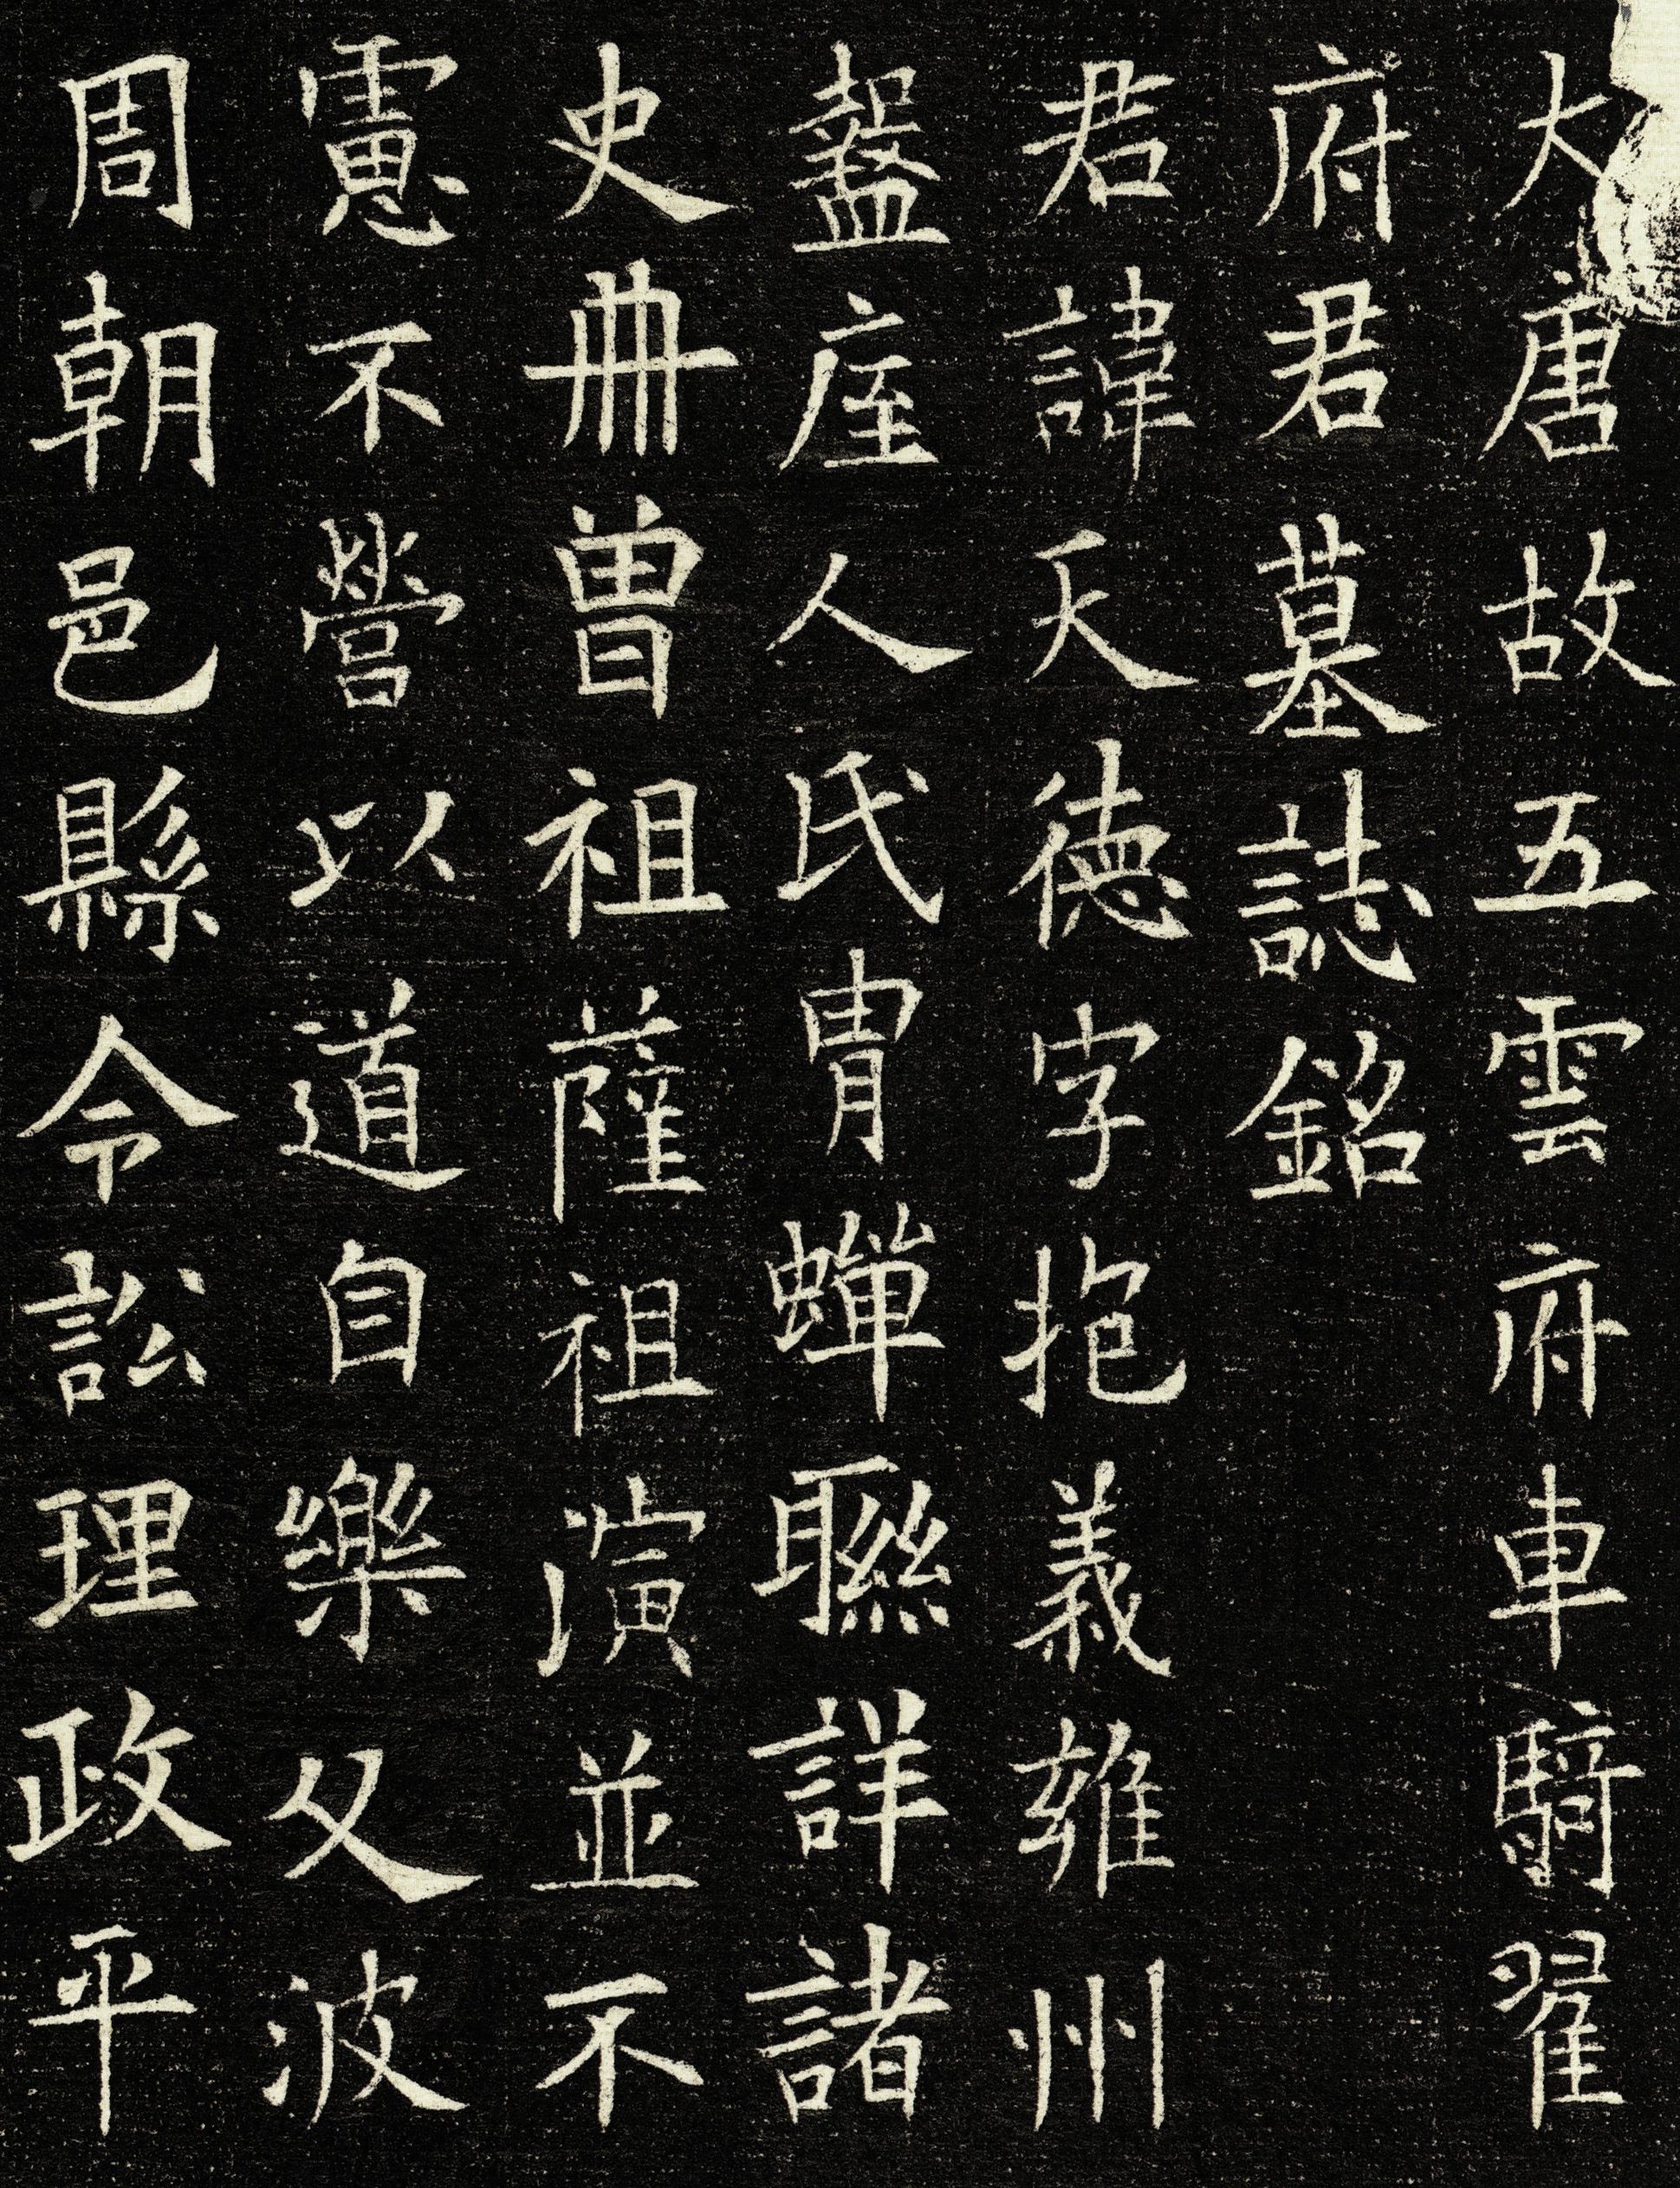 大唐故五雲府車騎翟
府君墓誌銘
君諱天德字抱義雍州
盩庢人氏冑蟬聯詳諸
史冊曾祖薩祖演並不
憲不營以道自樂父波
周朝邑縣令訟理政平